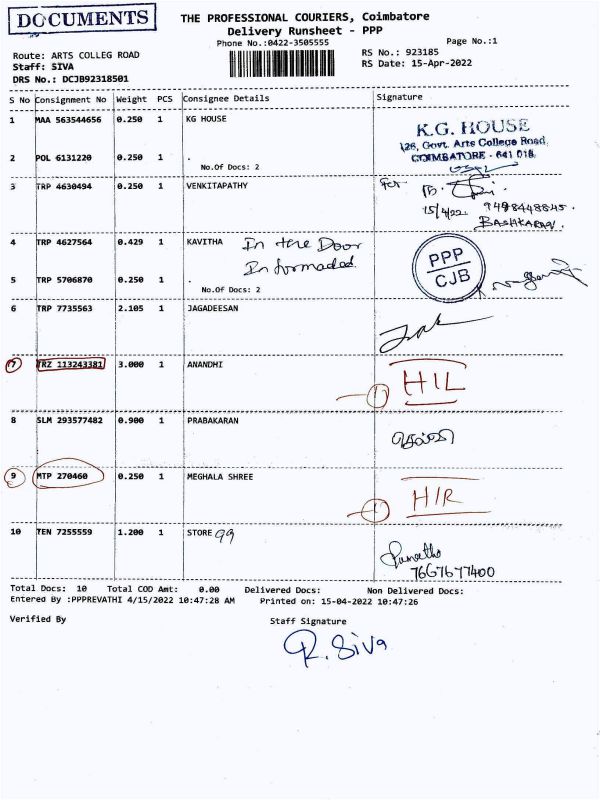 DOCUMENTS
THE PROFESSIONAL COURIERS, Coimbatore
Delivery Runsheet - PPP
Phone No.:0422-3505555
Page No.:1
Route: ARTS COLLEG ROAD
Staff: SIVA
DRS No.: DCJB92318501
RS No.: 923185
RS Date: 15-Apr-2022
S No Consignment No Weight PCS Consignee Details Signature
1 MAA 563544656 0.250 1 KG HOUSE
K.G. HOUSE
126, Govt. Arts College Road,
COIMBATORE - 641 018.
2 POL 6131220 0.250 1 .
No.Of Docs: 2
3 TRP 4630494 0.250 1 VENKITAPATHY
for
15/4/22. 9498448845.
BASHKARAN.
4 TRP 4627564 0.429 1 KAVITHA In the Door
Informaded
PPP
CJB
5 TRP 5706870 0.250 1 .
No.Of Docs: 2
6 TRP 7735563 2.105 1 JAGADEESAN
7 TRZ 113243381 3.000 1 ANANDHI
1 H/L
8 SLM 293577482 0.900 1 PRABAKARAN
9 MTP 270460 0.250 1 MEGHALA SHREE
1 H/R
10 TEN 7255559 1.200 1 STORE 99
7667677400
Total Docs: 10 Total COD Amt: 0.00 Delivered Docs: Non Delivered Docs:
Entered By :PPPREVATHI 4/15/2022 10:47:28 AM Printed on: 15-04-2022 10:47:26
Verified By Staff Signature
R. Siva